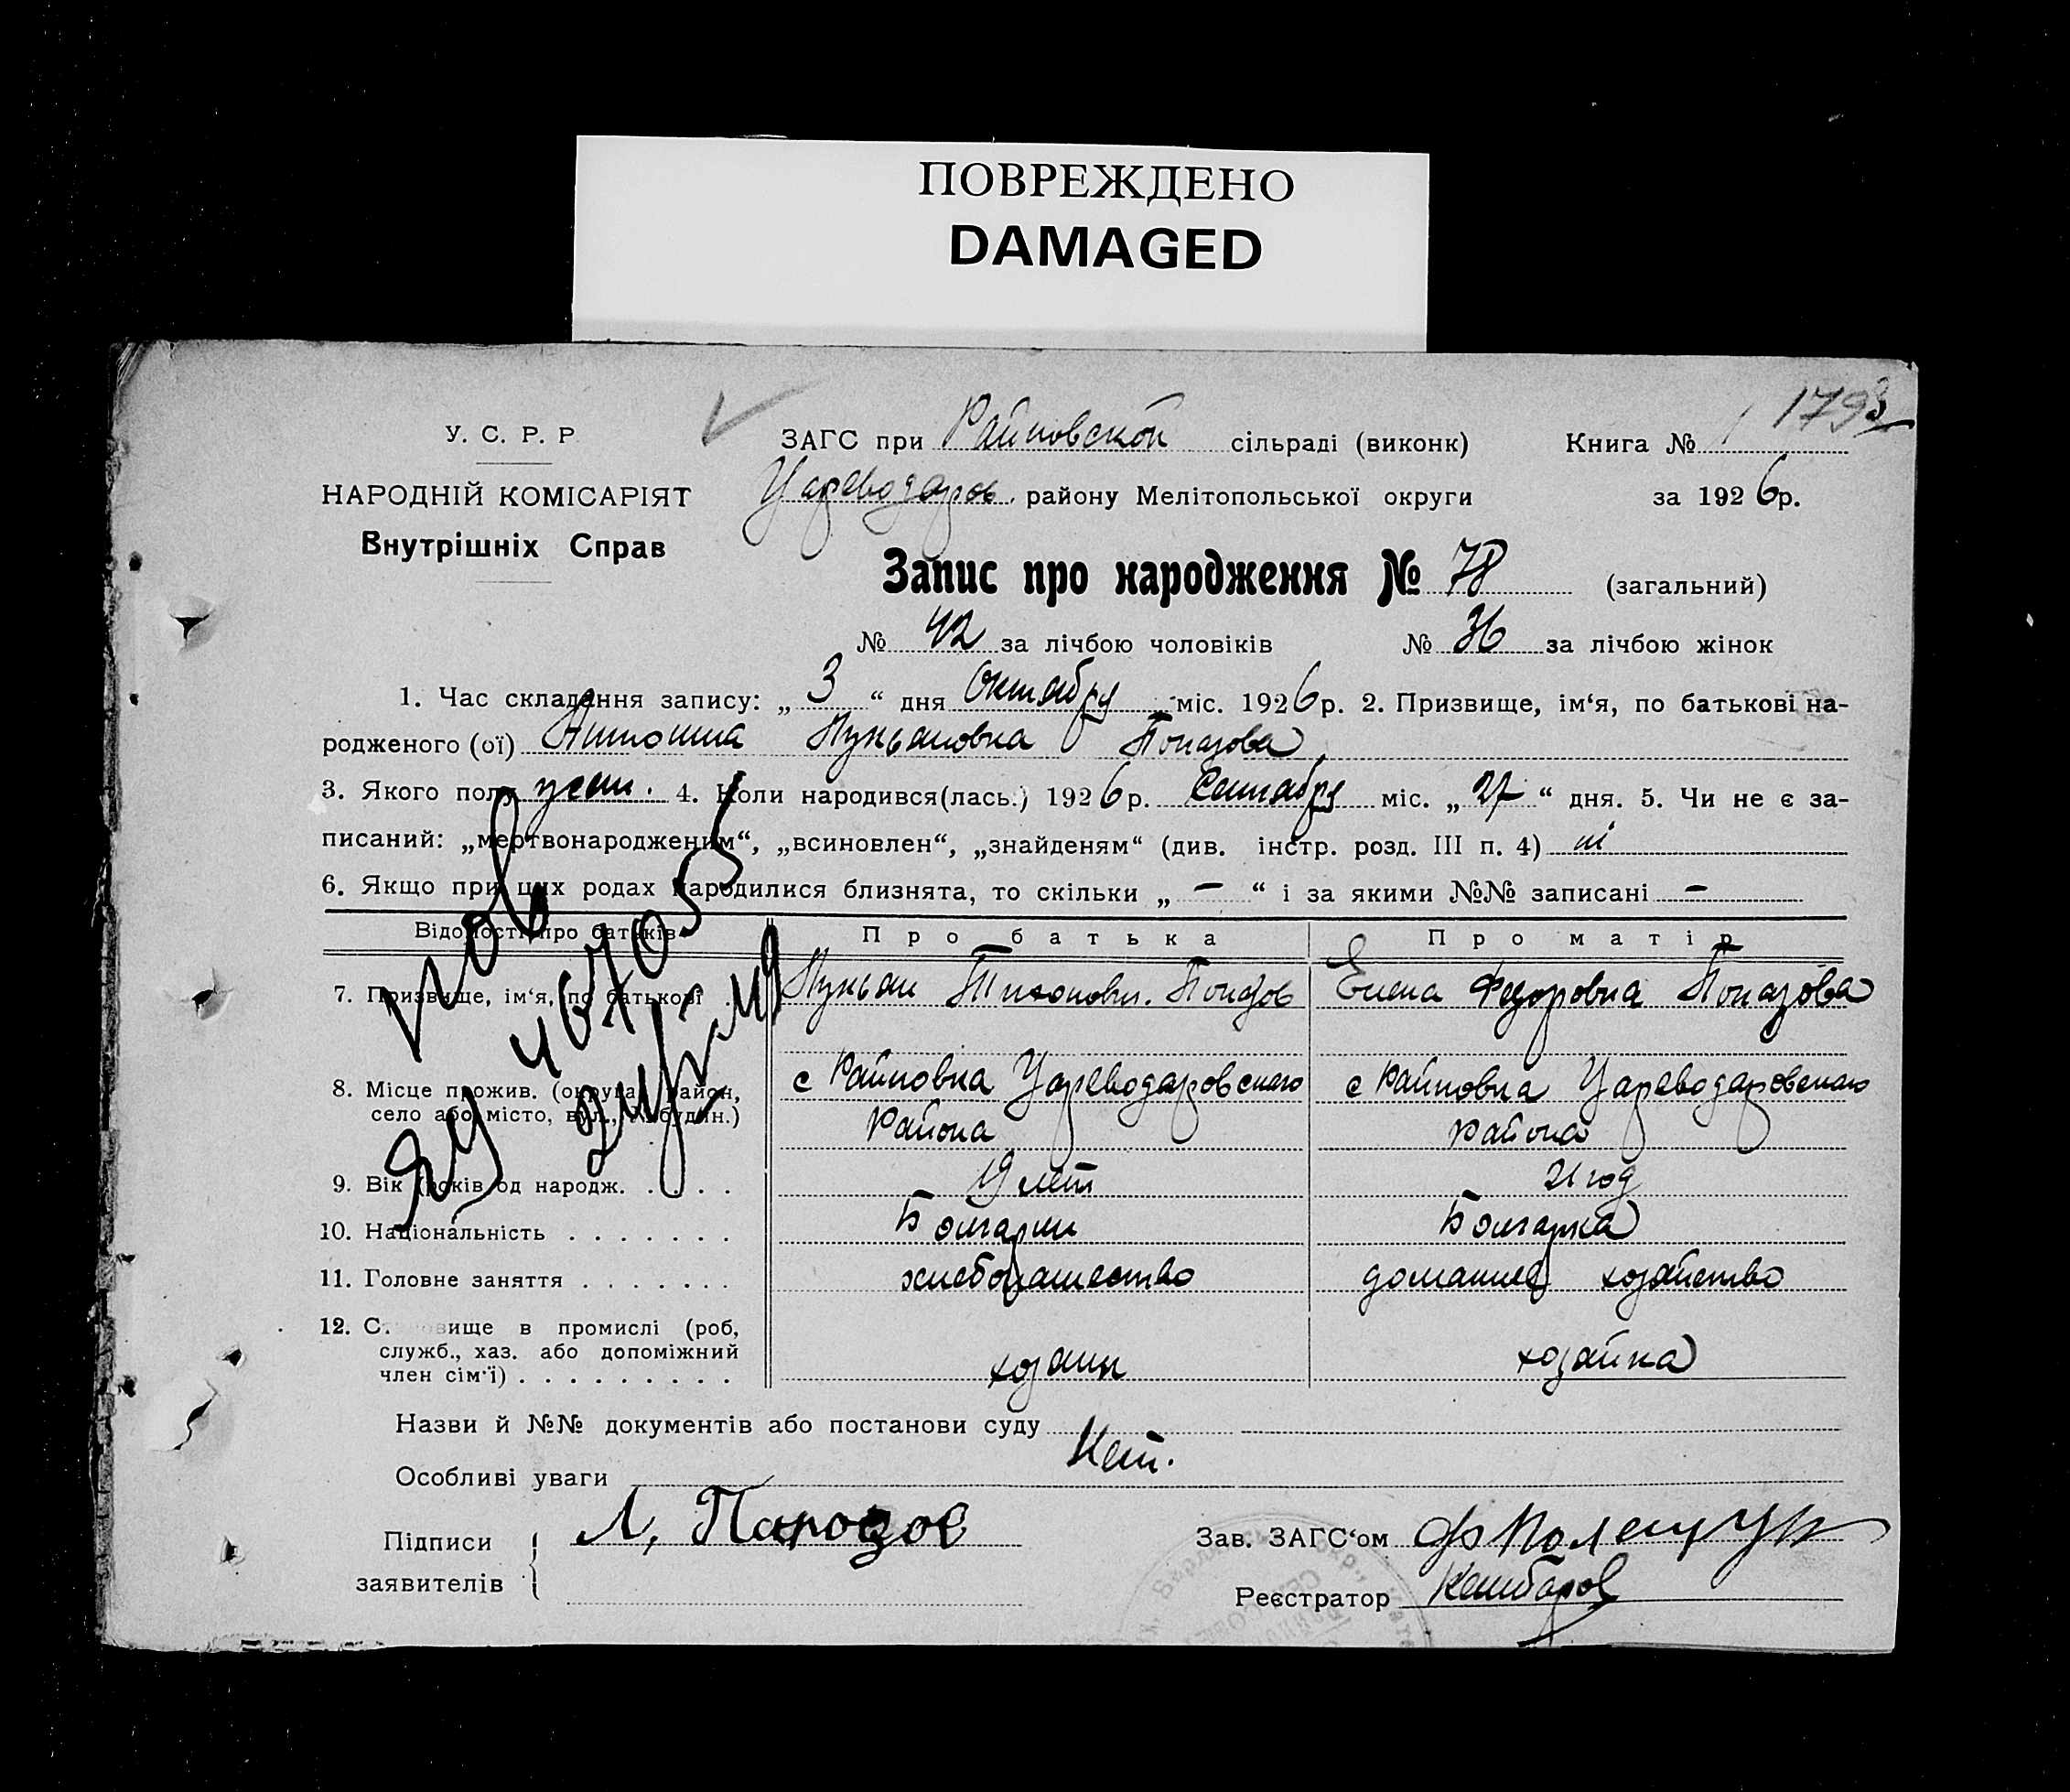 ПОВРЕЖДЕНО
DAMAGED
1793
У. С. Р. Р
НАРОДНІЙ КОМІСАРІЯТ
Внутрішніх Справ
ЗАГС при Райновской сільраді (виконк) Книга №
Цареводаров. району Мелітопольської округи за 1926р.
Запис про народження № 78 (загальний)
№ 42 за лічбою чоловіків № 36 за лічбою жінок
1. Час складання запису: „ 3 “ дня Октября міс. 1926р. 2. Призвище, ім‘я, по батькові на-
родженого (ої) Антонина Лукьяновна Попазова
3. Якого полу жен. 4. Коли народився(лась.) 1926р. Сентября міс. „ 27 “ дня. 5. Чи не є за-
писаний: „мертвонародженим“, „всиновлен“, „знайденям“ (див. інстр. розд. III п. 4) ні
6. Якщо при цих родах народилися близнята, то скільки „ — “ і за якими №№ записані —
Відомості про батьків Про батька Про матір
7. Призвище, ім‘я, по батькові . Лукьян Тихонович. Попазов Елена Федоровна Попазова
8. Місце прожив. (округа, район, с Райновка Цареводаровского с Райновка Цареводаровского
село або місто, вул., № будин.) Района района
9. Вік (років од народж. . . . . 19 лет 21 год
10. Національність . . . . . . . Болгарин Болгарка
11. Головне заняття . . . . . . . хлебопашество домашнее хозяйство
12. С вище в промислі (роб,
служб., хаз. або допоміжний хозяин хозяйка
член сім‘ї) . . . . . . . . .
Назви й №№ документів або постанови суду
Нет.
Особливі уваги
Підписи Л, Папозов Зав. ЗАГС‘ом Ф Полещук
заявителів Реєстратор